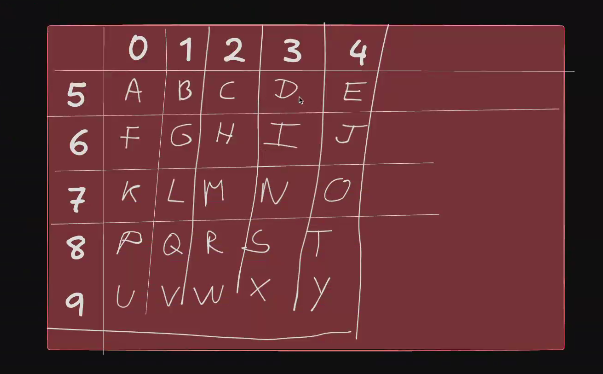 0 1 2 3 4
5 A B C D E
6 F G H I J
7 K L M N O
8 P Q R S T
9 U V W X Y